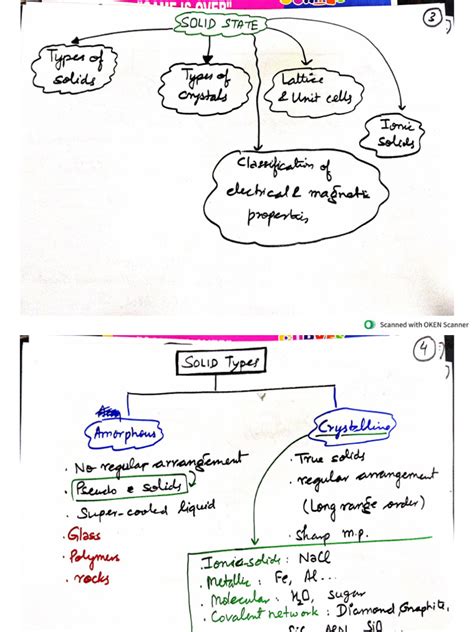 "GAME IS OVER"
3
SOLID STATE
Types of
solids
Types of
crystals
Lattice
& Unit cells
Ionic
solids
Classification of
electrical & magnetic
properties
Scanned with OKEN Scanner
4
SOLID Types
Amorphous
Crystalline
. No regular arrangement
. Pseudo solids
. Super-cooled liquid
. Glass
. Polymers
. rocks
. True solids
. regular arrangement
(Long range order)
. Sharp m.p.
Ionic solids : NaCl
. Metallic : Fe, Al...
. Molecular : H2O, sugar
. Covalent network : Diamond, Graphite,
SiC, AlN, SiO